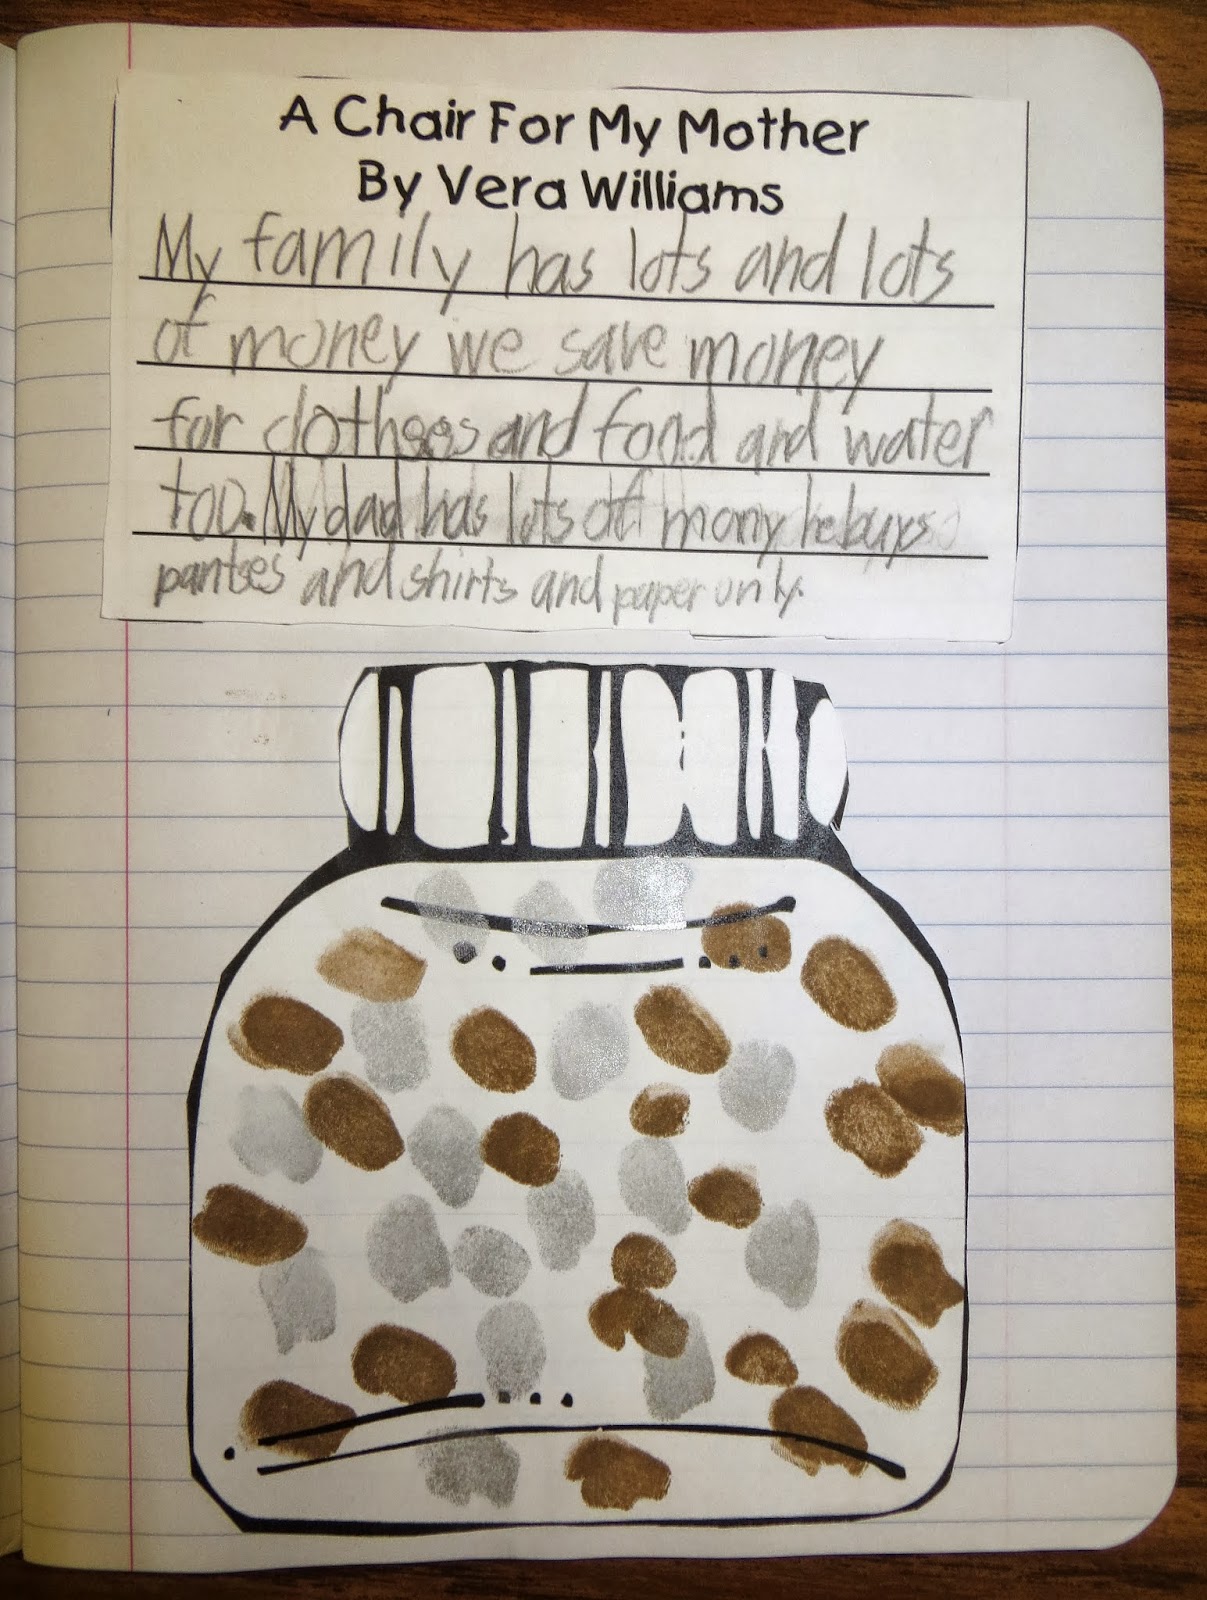 A Chair For My Mother
By Vera Williams
My family has lots and lots
of money we save money
for clothses and food and water
too. My dad has lots of mony he buys
pantses and shirts and paper only.